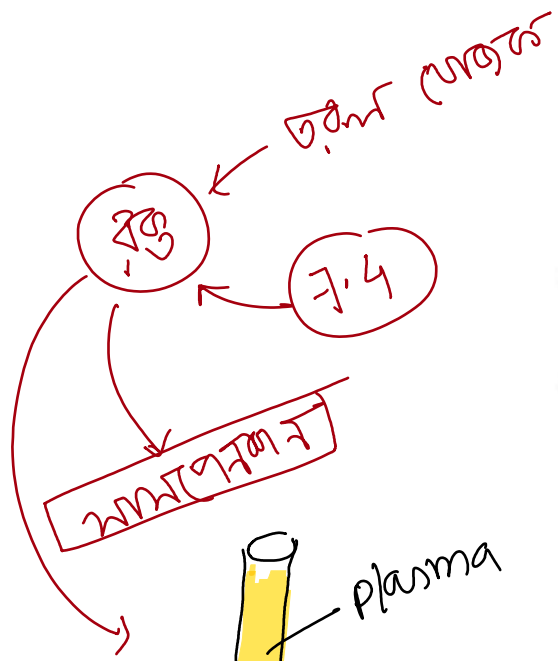 তরল যোজক
রক্ত
7.4
সাসপেনশন
plasma